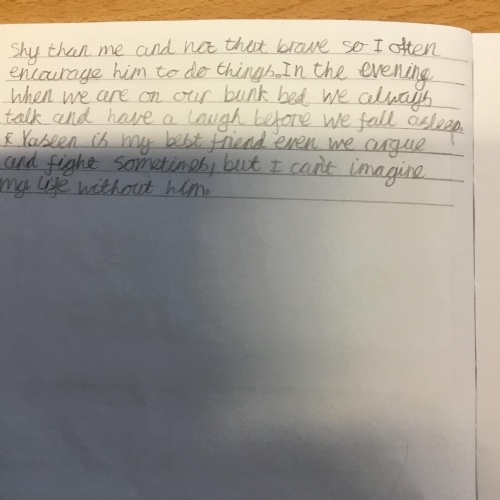 shy than me and not that brave so I often
encourage him to do things. In the evening
when we are on our bunk bed we always
talk and have a laugh before we fall asleep.
Yaseen is my best friend even we argue
and fight sometimes, but I can't imagine
my life without him.